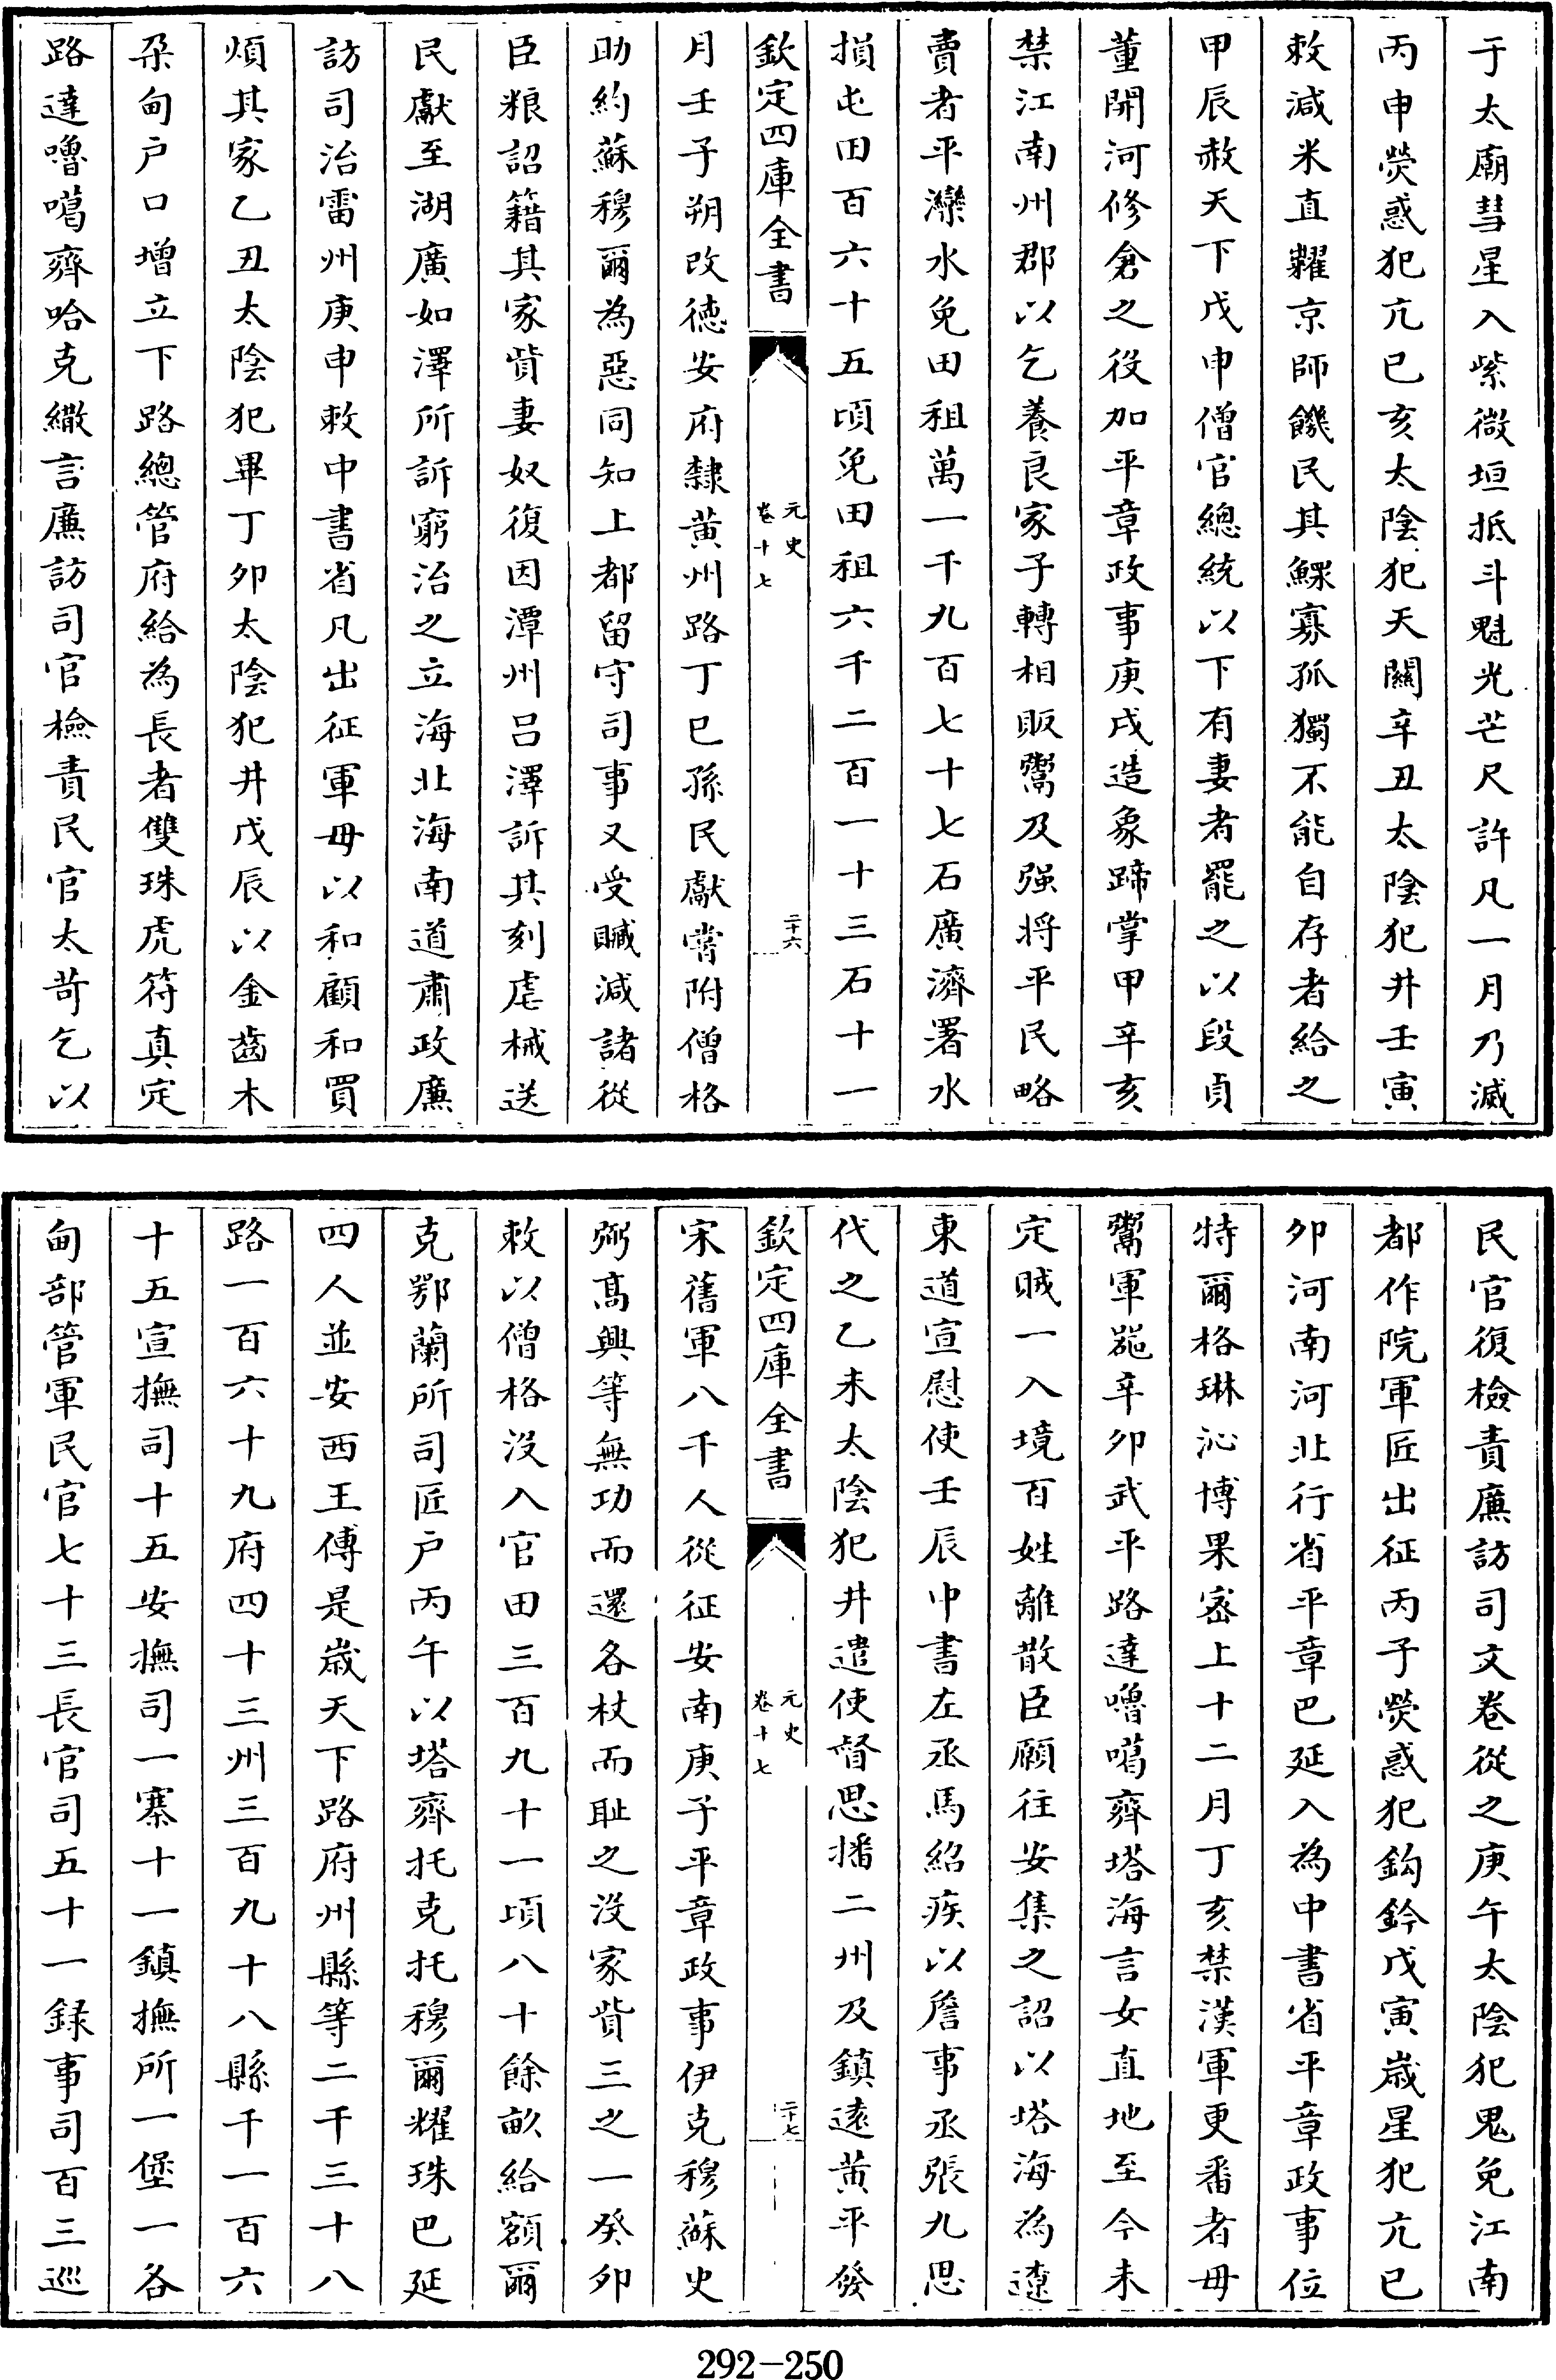 于太廟彗星入紫微垣抵斗魁光芒尺許凡一月乃滅
丙申熒惑犯亢己亥太陰犯天關辛丑太陰犯井壬寅
敕減米直糶京師饑民其鰥寡孤獨不能自存者給之
甲辰赦天下戊申僧官總統以下有妻者罷之以段貞
董開河修倉之役加平章政事庚戌造象蹄掌甲辛亥
禁江南州郡以乞養良家子轉相販鬻及强將平民略
賣者平灤水免田租萬一千九百七十七石廣濟署水
損屯田百六十五頃免田租六千二百一十三石十一
欽定四庫全書
元史
卷十七
二十六
月壬子朔改德安府隸黄州路丁巳孫民獻嘗附僧格
助約蘇穆爾為惡同知上都留守司事又受贓減諸從
臣粮詔籍其家貲妻奴復因潭州吕澤訴其刻虐械送
民獻至湖廣如澤所訴窮治之立海北海南道肅政廉
訪司治雷州庚申敕中書省凡出征軍毋以和顧和買
煩其家乙丑太陰犯畢丁卯太陰犯井戊辰以金齒木
朶甸户口增立下路總管府給為長者雙珠虎符真定
路達嚕噶齊哈克繖言廉訪司官檢責民官太苛乞以
民官復檢責廉訪司文卷從之庚午太陰犯鬼免江南
都作院軍匠出征丙子熒惑犯鈎鈐戊寅歲星犯亢己
卯河南河北行省平章巴延入為中書省平章政事位
特爾格琳沁博果宻上十二月丁亥禁漢軍更番者毋
鬻軍器辛卯武平路達嚕噶齊塔海言女直地至今未
定賊一入境百姓離散臣願往安集之詔以塔海為遼
東道宣慰使壬辰中書左丞馬紹疾以詹事丞張九思
代之乙未太陰犯井遣使督思播二州及鎮逺黄平發
欽定四庫全書
元史
卷十七
二十七
宋舊軍八千人從征安南庚子平章政事伊克穆蘇史
弼髙興等無功而還各杖而耻之没家貲三之一癸卯
敕以僧格没入官田三百九十一頃八十餘畝給額爾
克鄂蘭所司匠户丙午以塔齊托克托穆爾耀珠巴延
四人並安西王傅是歲天下路府州縣等二千三十八
路一百六十九府四十三州三百九十八縣千一百六
十五宣撫司十五安撫司一寨十一鎮撫所一堡一各
甸部管軍民官七十三長官司五十一録事司百三巡
292－250